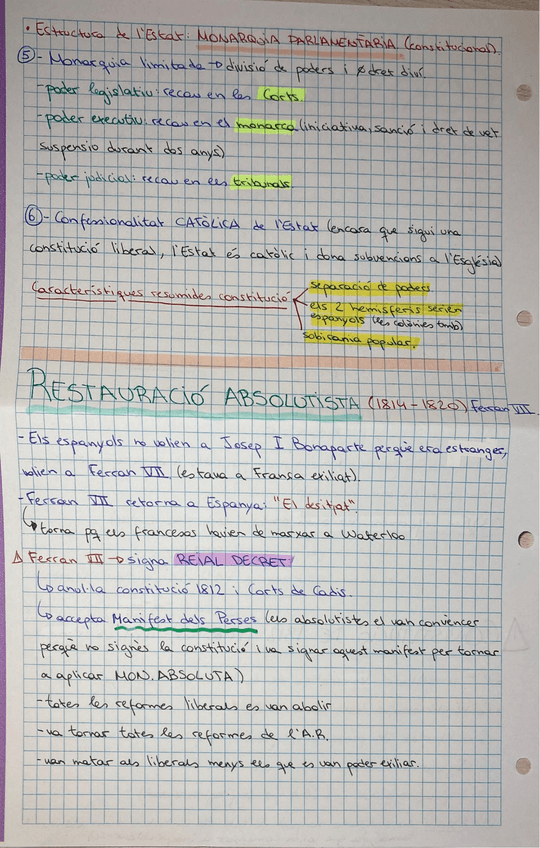 • Estructura de l'Estat: MONARQUIA PARLAMENTARIA (constitucional).
⑤- Monarquia limitada → divisió de poders i ∄ dret diví.
-poder legislatiu: recau en les Corts.
-poder executiu: recau en el monarca (iniciativa, sanció i dret de vet
suspensio durant dos anys)
-poder judicial: recau en els tribunals.
⑥- Confessionalitat CATÒLICA de l'Estat (encara que sigui una
constitució liberal, l'Estat és catòlic i dona subvencions a l'Església)
Característiques resumides constitució
separació de poders
els 2 hemisferis serien
espanyols (les colònies tmb)
sobirania popular.
RESTAURACIÓ ABSOLUTISTA (1814-1820) Ferran VII.
- Els espanyols no volien a Josep I Bonaparte perquè era estranger,
volien a Ferran VII (estava a Fransa exiliat).
- Ferran VII retorna a Espanya: "El desitjat".
↳ torna pq els francesos havien de marxar a Waterloo
Δ Ferran VII → signa REIAL DECRET:
↳ anul·la constitució 1812 i Corts de Cadis.
↳ accepta Manifest dels Perses (els absolutistes el van convencer
perquè no signés la constitució i va signar aquest manifest per tornar
a aplicar MON. ABSOLUTA)
- totes les reformes liberals es van abolir
- va tornar totes les reformes de l'A.R.
- van matar als liberals menys els que es van poder exiliar.